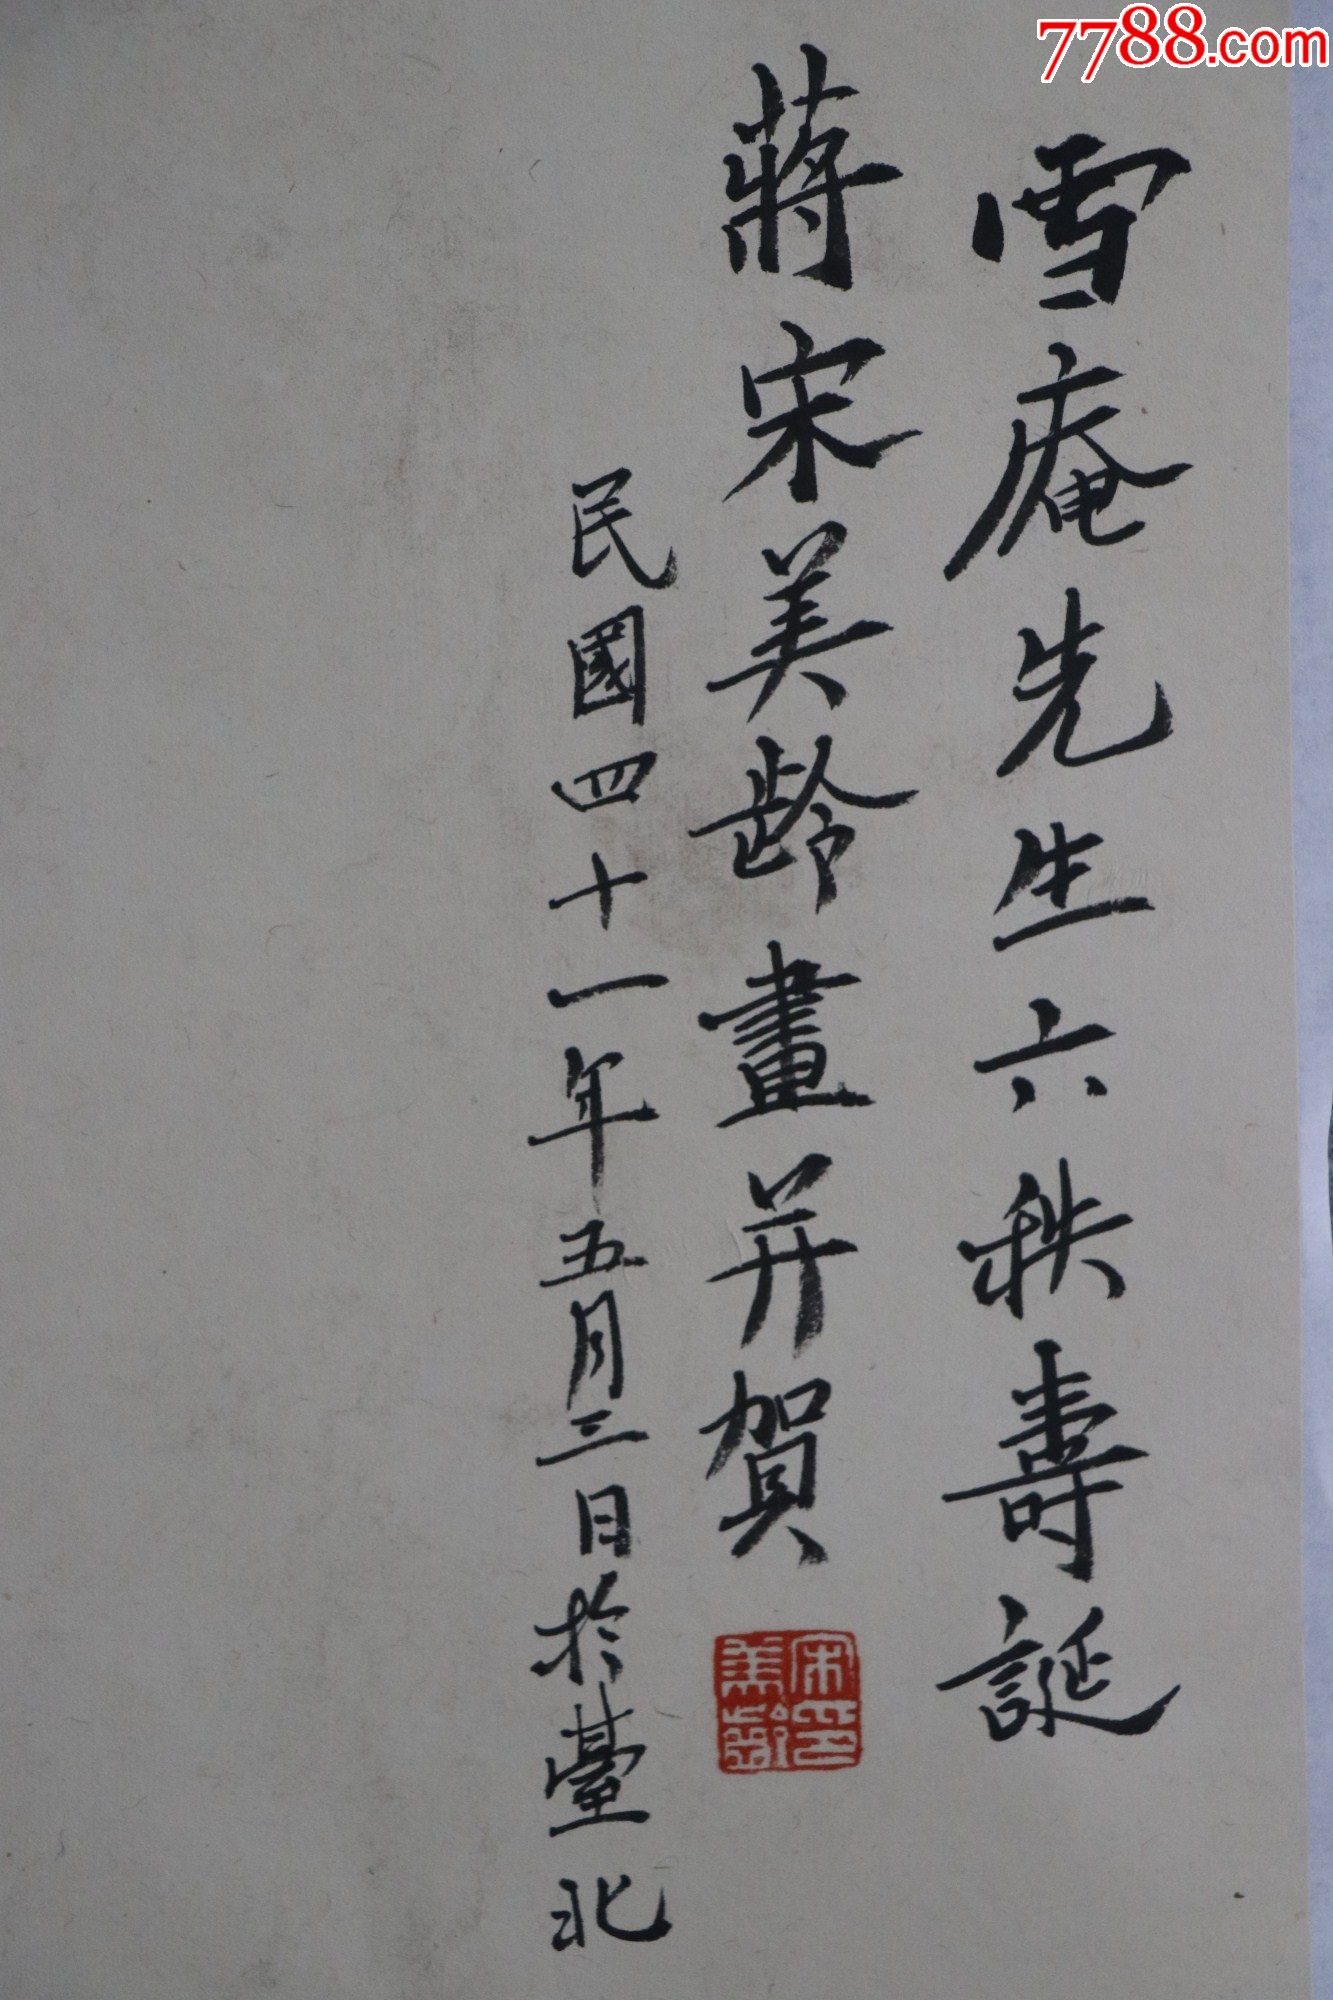 7788.com
雪庵先生六秩壽誕
蔣宋美齡畫并賀
民國四十一年五月三日於臺北
宋美齡印